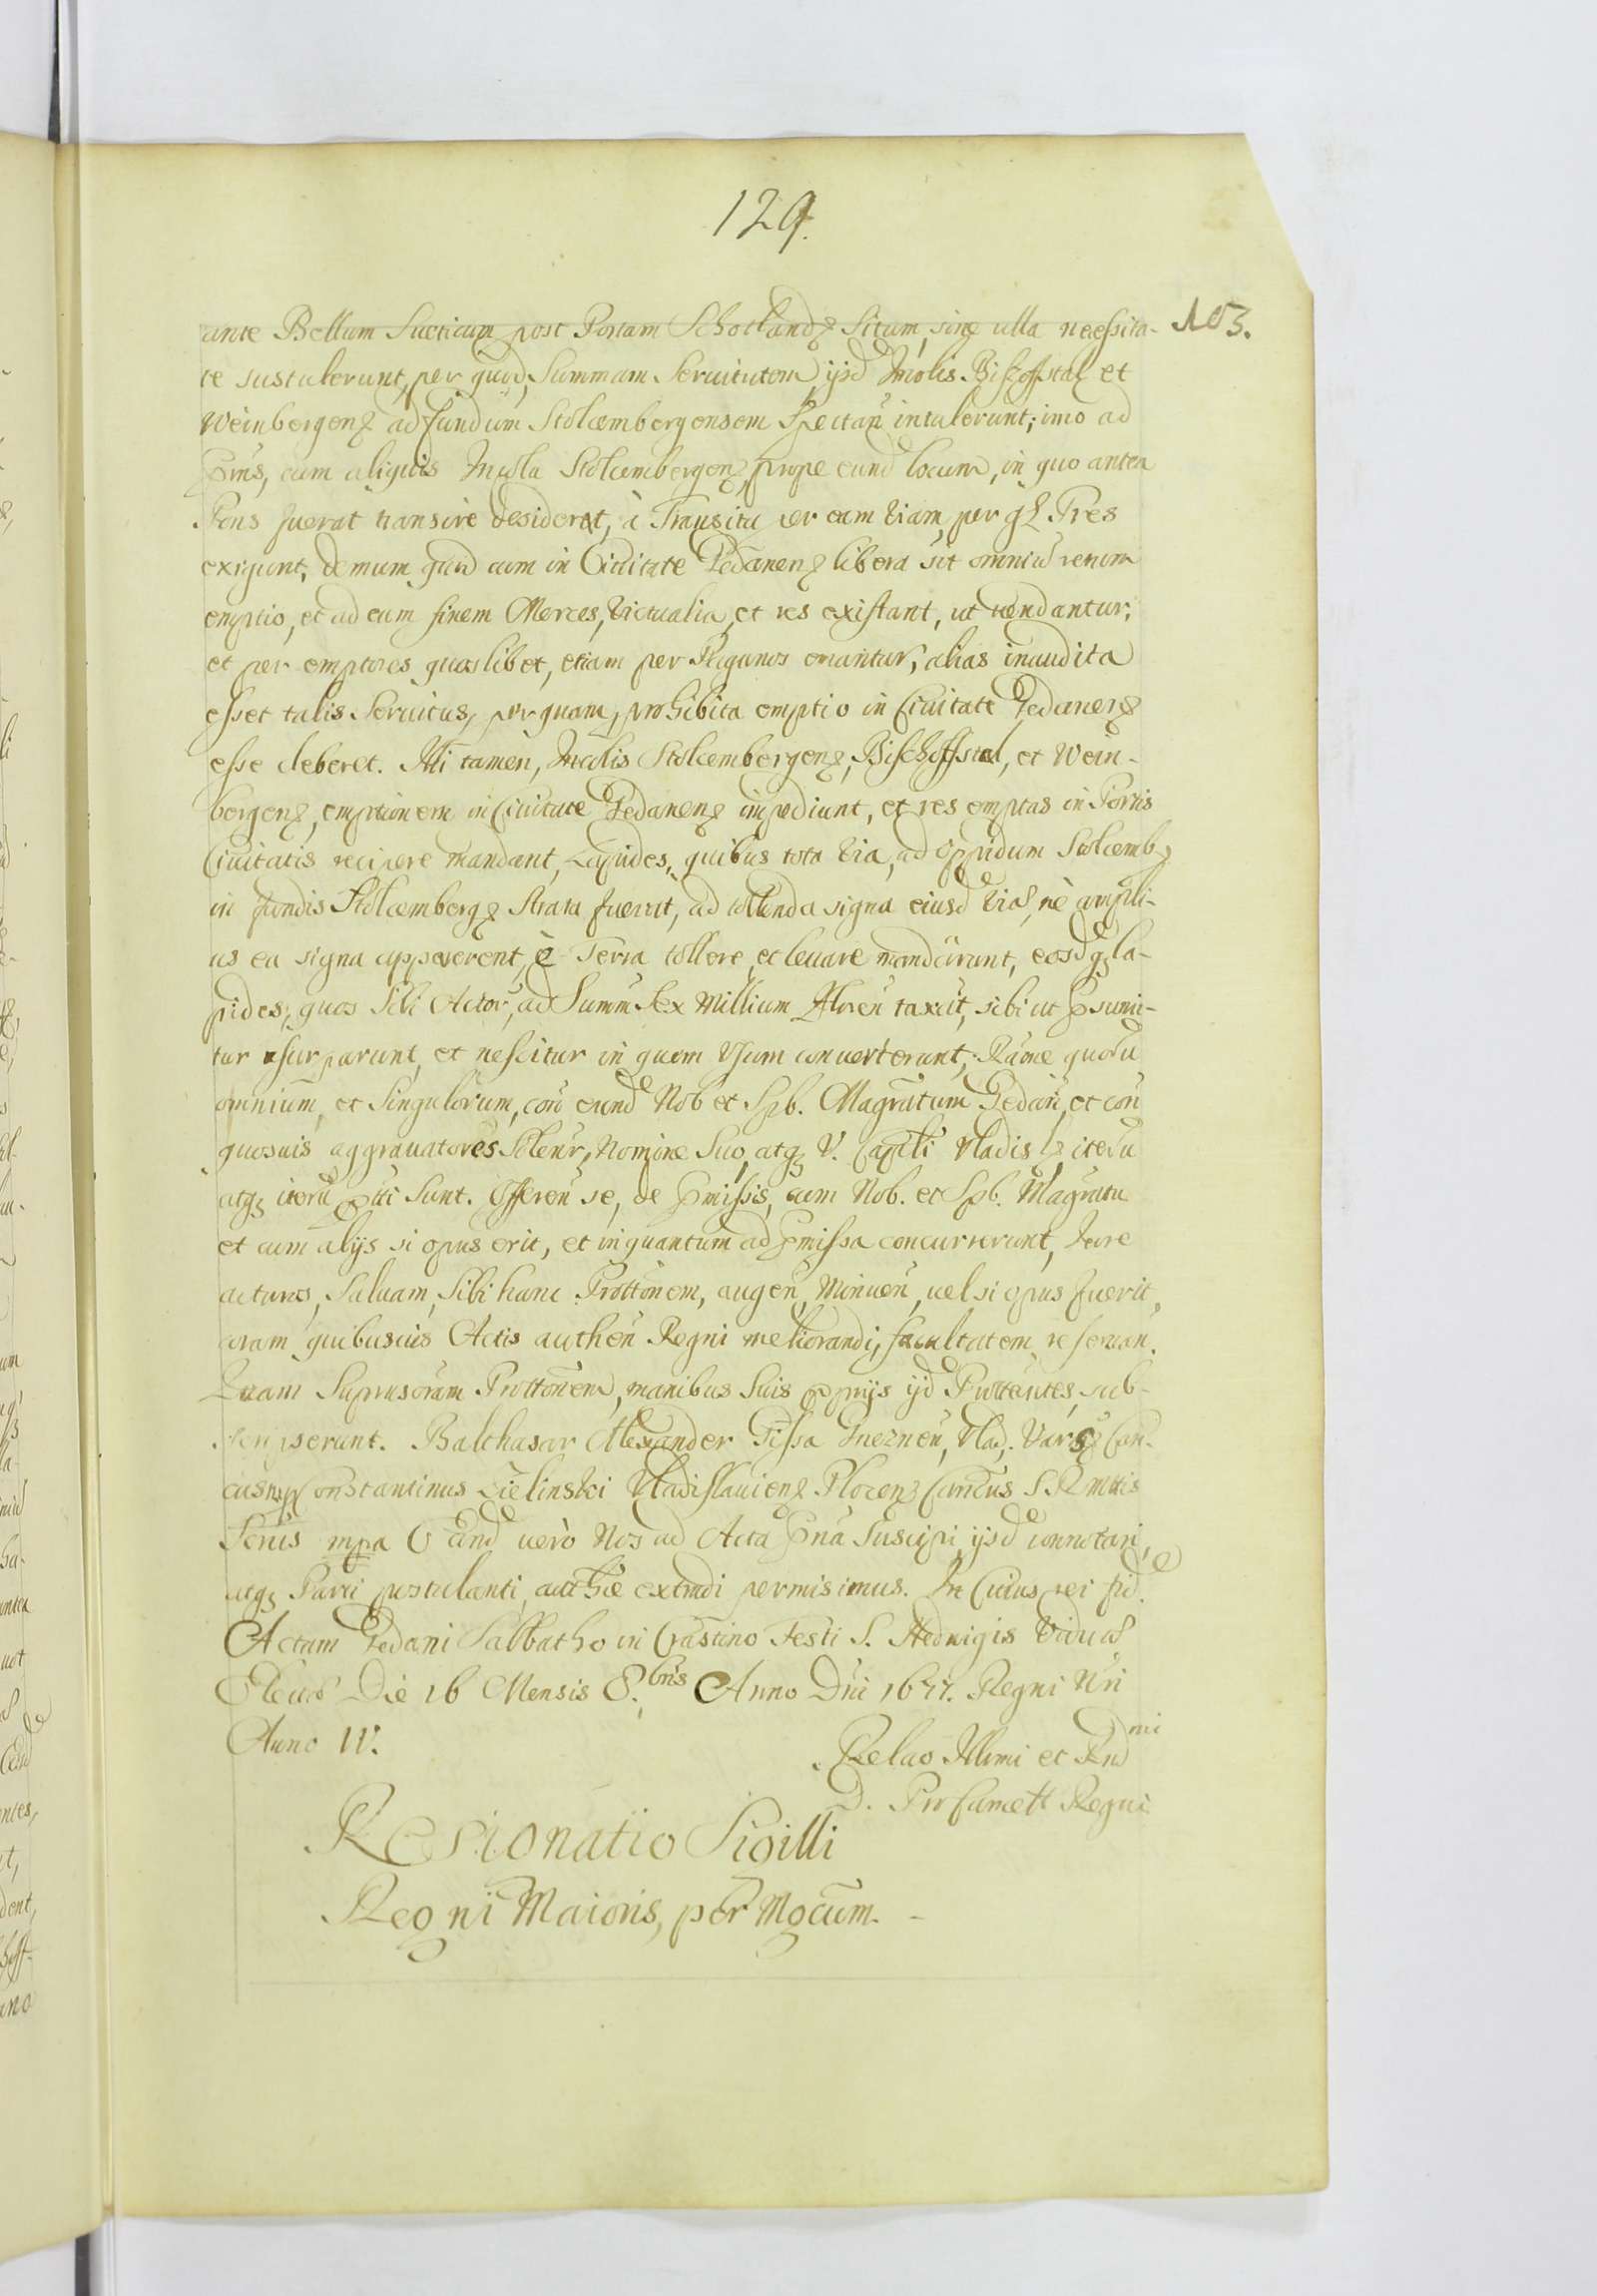 129.
103.
ante Bellum Sueticum post Portam Schotlandꝫ Situm, sine ulla necessita-
te sustulerunt, per quod, Summam Seruitutem ijsd Incolis Bischoffstal et
Weinbergenꝫ ad fundum Stolcembergensem Spectan intulerunt; imo ad
pns, cum aliquis Incola Stolcembergenꝫ prope eund locum, in quo antea
Pons fuerat transire desiderat, à Transitu per eam viam per gl Tres
exigunt, demum quod cum in Ciuitate Gedanenꝫ libera sit omniu rerum
emptio, et ad eum finem Merces, Victualia, et res existant, ut uendantur,
et per emptores quoslibet, etiam per Pleganos emantur, alias inaudita
esset talis Seruitus, per quam, prohibita emptio in Ciuitate Gedanenꝫ
esse deberet. Illi tamen, Incolis Stolcembergenꝫ, Bischoffstal, et Wein-
bergenꝫ, emptionem in Ciuitate Gedanenꝫ impediunt, et res emptas in Portis
Ciuitatis recipere mandant, Lapides, quibus tota Via, ad Oppidum Stolcembꝫ
in fundis Stolcembergꝫ Strata fuerat, ad tollenda signa eiusd Viae, nè ampli-
us ea signa apparerent, è Terra tollere et leuare mandarunt, eosdqꝫ la-
pides, quos Sibi Actor, ad Summ Sex Millium Floren taxat, sibi ut psumi-
tur usurparunt, et nescitur in quem Usum conuerterunt; Raone quoru
omnium, et Singulorum, con eund Nob et Spb. Magratum Gedan, et con
quosuis aggrauatores Solenr, Nomine Suo, atqꝫ V. Capli Vladislꝫ iteru
atqꝫ iteru pti Sunt. Offeren se, de pmissis, cum Nob. et Spb. Magratu
et cum alijs si opus erit, et inquantum ad pmissa concurrerunt, Iure
acturos, Saluam, Sibi hanc Prottonem, augen, Minuen, uel si opus fuerit,
coram quibusuis Actis authen Regni meliorandi, facultatem reseruan.
Quam Suprascram Prottonem, manibus Suis pprijs ijd Prottantes, sub-
scripserunt. Balthasar Alexander Gissa Gneznen, Vlad. Varsꝫ Can-
cus mp Constantinus Zielinski Vladislauienꝫ Plocenꝫ Cancus S R Mttis
Scrius mpa Eand uerò Nos ad Acta pna Suscipi, ijsd connotari,
atqꝫ Parti postulanti, authce extradi permisimus. In Cuius rei fid.
Actum Gedani Sabbatho in Crastino Festi S. Hedwigis Viduae
Electae Die 16 Mensis 8bris Anno Dni 1677. Regni Nri
Anno IV.
Relao Illmi et Rndmi
D. ProCancett Regni
Resignatio Sigilli
Regni Maioris, per Mgcum. -